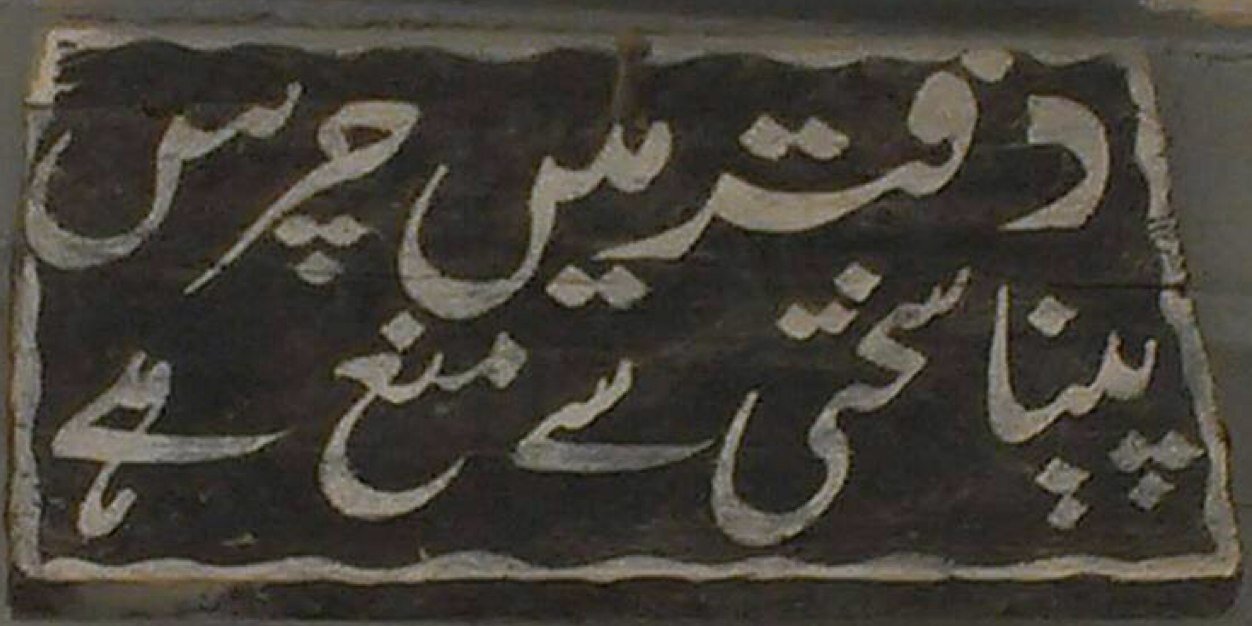 دفتر میں چرس
پینا سختی سے منع ہے